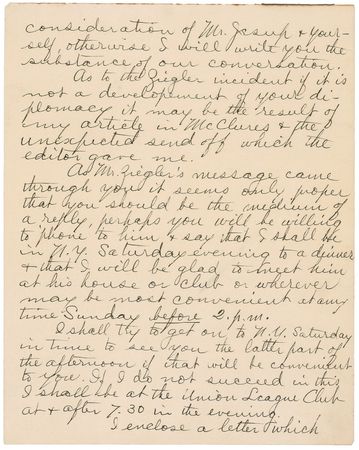 consideration of Mr. Jesup & your-
self, otherwise I will write you the
substance of our conversation.
As to the Ziegler incident if it is
not a development of your di-
plomacy it may be the result of
my article in McClures & the
unexpected send off which the
editor gave me.
As Mr. Ziegler's message came
through you it seems only proper
that you should be the medium of
a reply, perhaps you will be willing
to 'phone to him & say that I shall be
in N.Y. Saturday evening to a dinner
& that I will be glad to meet him
at his house or Club or wherever
may be most convenient at any
time Sunday before 2. p.m.
I shall try to get on to N.Y. Saturday
in time to see you the latter part of
the afternoon if that will be convenient
to you. If I do not succeed in this
I shall be at the Union League Club
at & after 7.30 in the evening.
I enclose a letter which